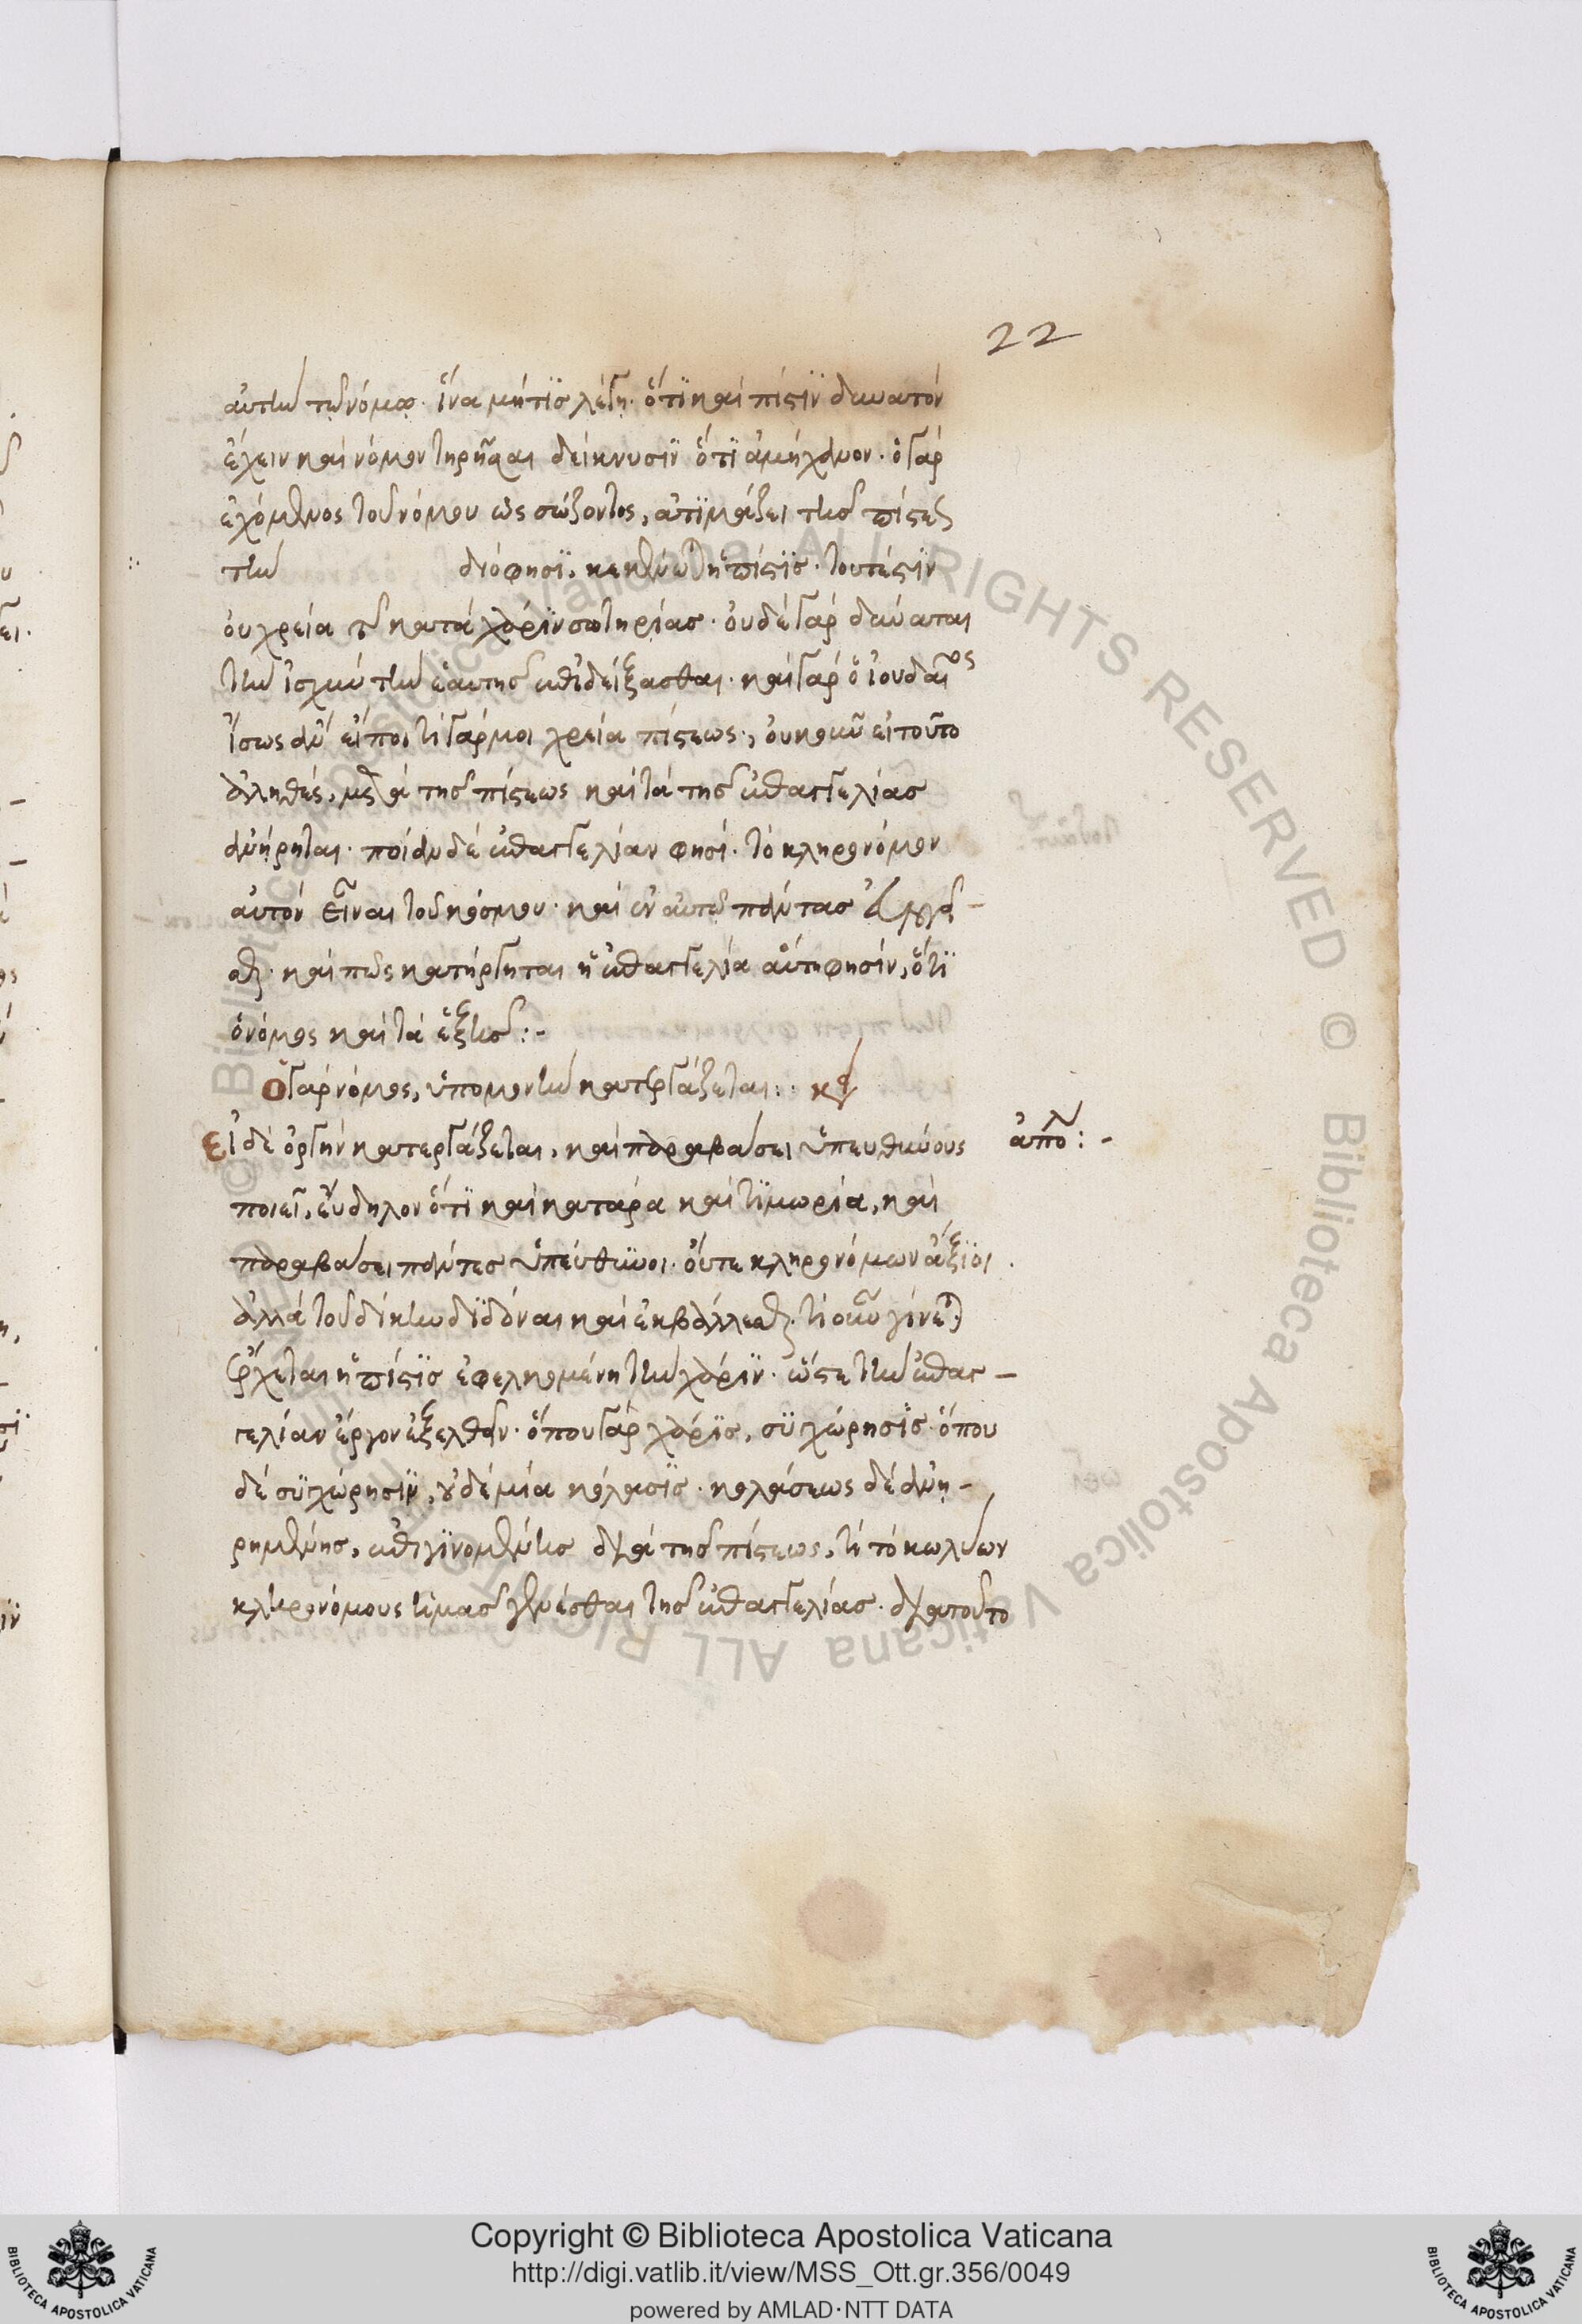 22
αὐτὴν τῷ νόμῳ· ἵνα μή τϊσ λέγη· ὅτϊ καὶ πίστϊν δυνατόν
ἔχειν καὶ νόμον τηρῆσαι δείκνυσϊν ὅτϊ ἀμήχανον· ὁ γάρ
ἐχόμενος τοῦ νόμου ὡς σώζοντος, ἀτϊμάζει τῆσ πίστεως
τὴν διό φησϊ, κεκένωται ἡ πίστϊσ· τουτέστϊν
οὐ χρεία τῆς κατά χάρϊν σωτηρίασ· οὐδέ γάρ δύναται
τὴν ἰσχύν τὴν ἑαυτῆσ ἐπιδείξασθαι· καὶ γάρ ὁ ἰουδαῖος
ἴσως ἄν εἴποι, τί γάρ μοι χρεία πίστεως, οὐκοῦν εἰ τοῦτο
ἀληθές, μετά τῆσ πίστεως καὶ τά τῆσ ἐπαγγελίασ
ἀνήρηται· ποίαν δέ ἐπαγγελίαν φησί· τό κληρονόμον
αὐτόν εἶναι τοῦ κόσμου· καὶ ἐν αὐτῷ πάντασ
καὶ πῶς κατήργηται ἡ ἐπαγγελία αὕτη φησίν, ὅτϊ
ὁ νόμος καὶ τά ἑξῆσ:-
Ο γάρ νόμος, ὑπομονὴν κατεργάζεται:·
Εἰ δέ ὀργήν κατεργάζεται, καὶ παραβάσει ὑπευθύνους ἀπο:-
ποιεῖ, εὔδηλον ὅτϊ καὶ κατάρα καὶ τϊμωρία, καὶ
παραβάσει πάντεσ ὑπεύθϋνοι· οὔτε κληρονόμων ἄξϊοι
ἀλλά τοῦ δίκην δϊδόναι καὶ ἐκβάλλεσθαι· τί οὖν γίνεται
ἔρχεται ἡ πίστϊσ ἐφελκομένη τὴν χάρϊν· ὥστε τὴν ἐπαγ-
γελίαν ἔργον ἐξελθεῖν· ὅπου γάρ χάρϊσ, συϊχώρησϊσ· ὅπου
δέ συϊχώρησϊν, οὐδέ μία κόλασϊσ· κολάσεως δέ ἀνη-
ρημένησ, ἐπιγϊνομένησ διά τῆσ πίστεως, τί τό κωλύων
κληρονόμους ἡμᾶσ γενέσθαι τῆσ ἐπαγγελίασ· διά τοῦτο
Copyright © Biblioteca Apostolica Vaticana
http://digi.vatlib.it/view/MSS_Ott.gr.356/0049
powered by AMLAD·NTT DATA